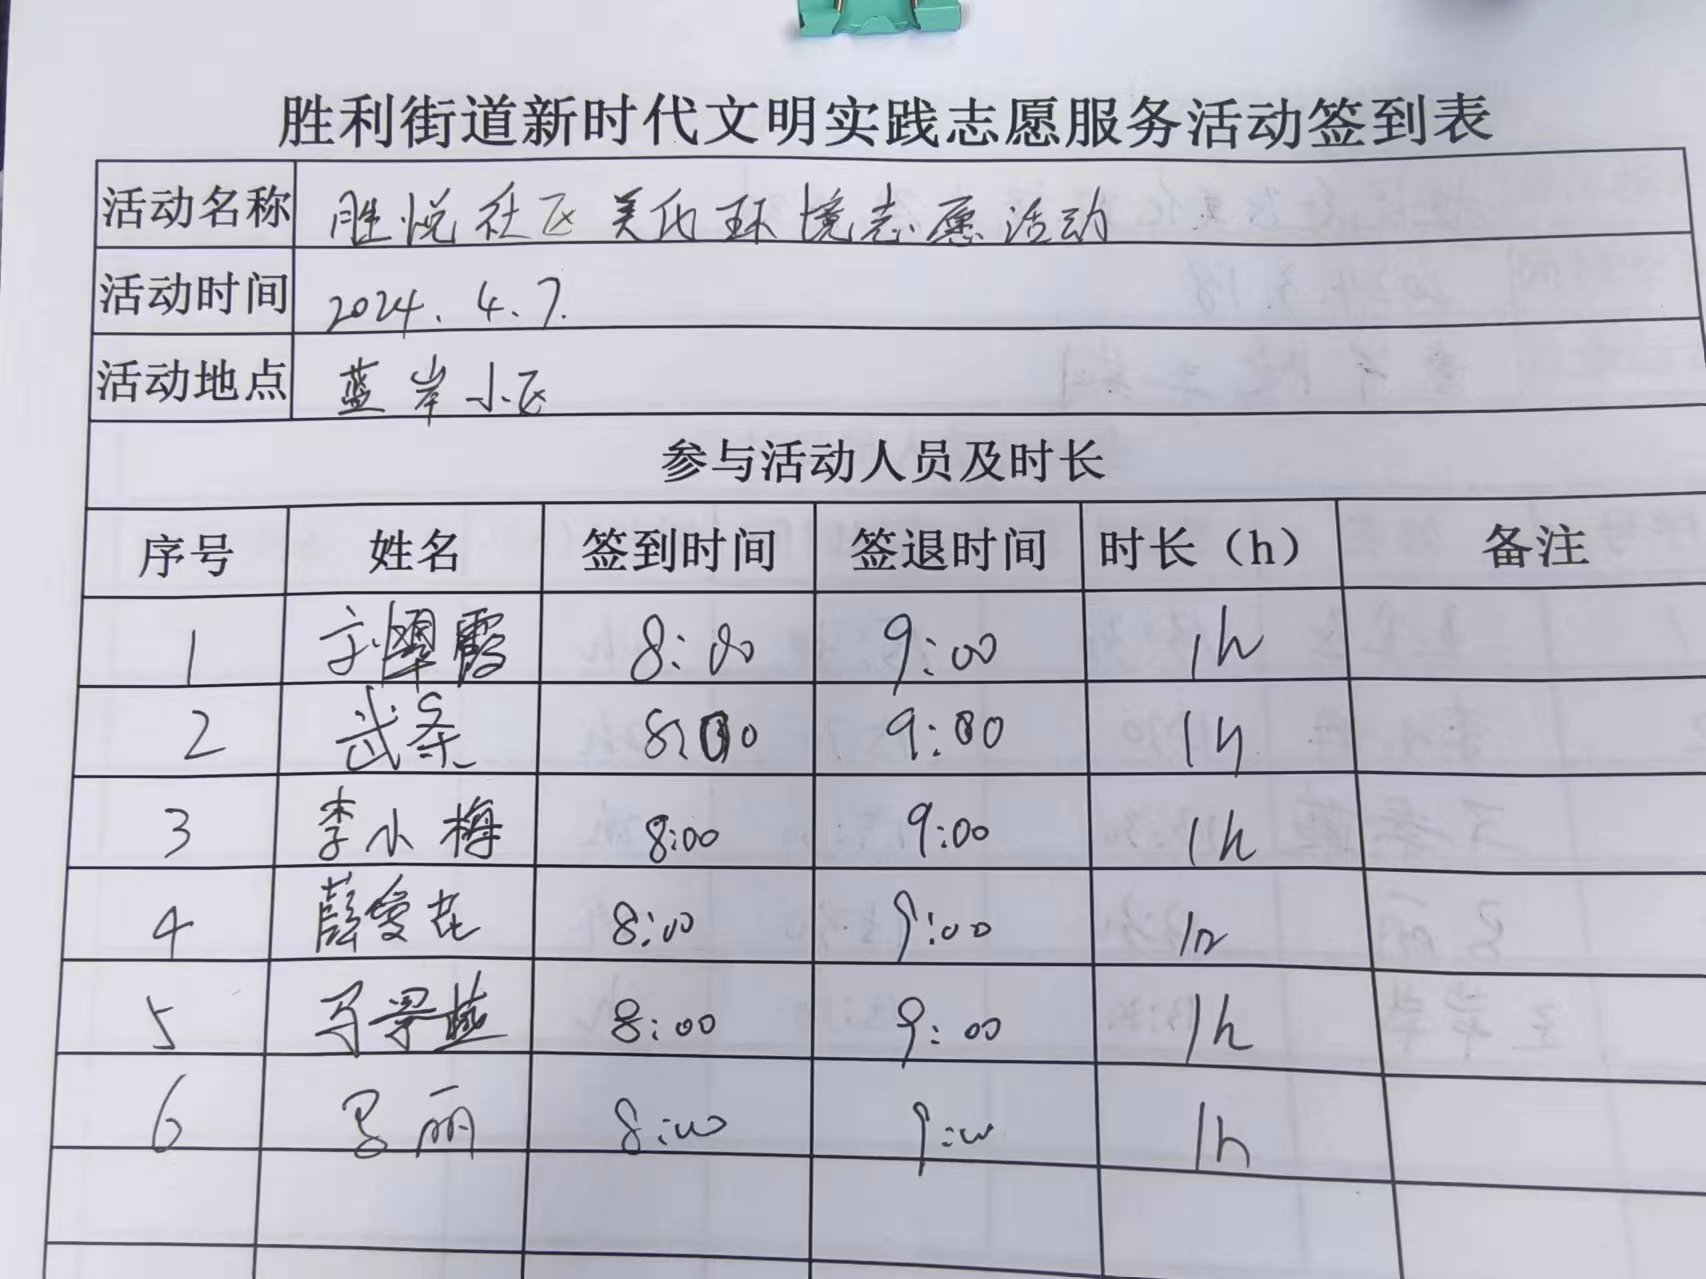 胜利街道新时代文明实践志愿服务活动签到表
活动名称 胜悦社区美化环境志愿活动
活动时间 2024.4.7.
活动地点 蓝岸小区
参与活动人员及时长
序号 姓名 签到时间 签退时间 时长（h） 备注
1 刘翠霞 8:00 9:00 1h
2 武条 8:00 9:00 1h
3 李小梅 8:00 9:00 1h
4 薛爱花 8:00 9:00 1h
5 8:00 9:00 1h
6 马丽 8:00 9:00 1h